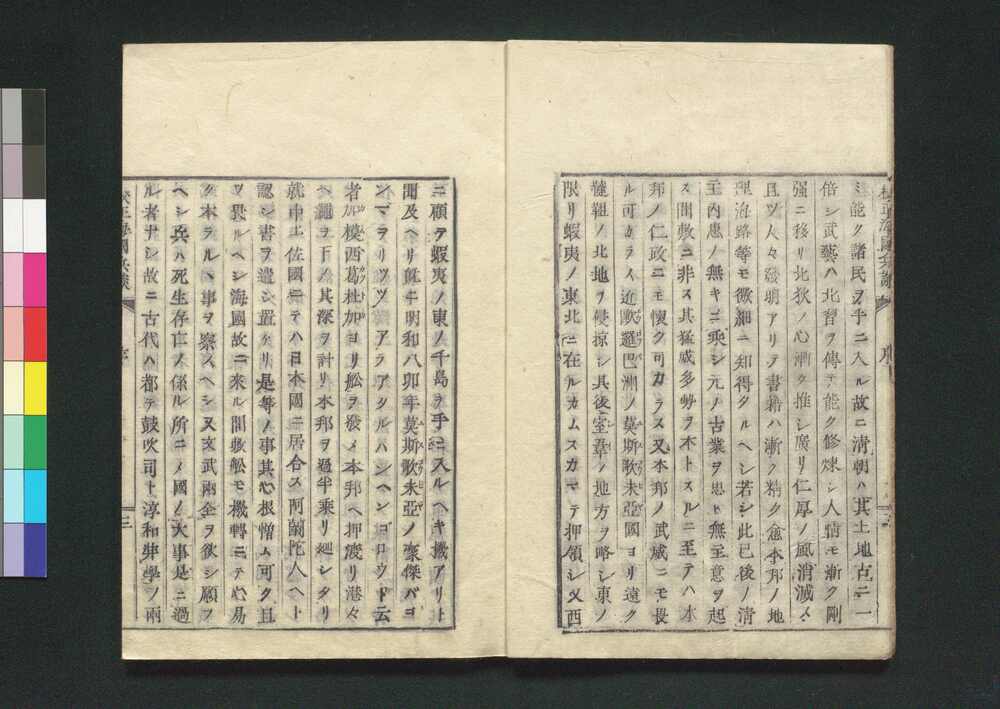 ミ能ク諸民ヲ手ニ入ル故ニ清朝ハ其土地古ニ一
倍シ武藝ハ北習ヲ傳テ能ク修煉シ人情モ漸ク剛
强ニ移リ北狄ノ心漸ク推シ廣リ仁厚ノ風消滅ス
且ツ人々發明アリテ書籍ハ漸ク精ク愈本邦ノ地
理海路等モ微細ニ知得タルヘシ若シ此已後ノ清
主内患ノ無キニ乘シ元ノ古業ヲ思ヒ無主意ヲ起
ス間敷ニ非ス其猛威多勢ヲ本トスルニ至テハ本
邦ノ仁政ニモ懷ク可カラス又本邦ノ武威ニモ畏
ル可カラス近歐羅巴洲ノ莫斯歌未亞國ヨリ遠ク
韃靼ノ北地ヲ侵掠シ其後室韋ノ地方ヲ略シ東ノ
限リ蝦夷ノ東北ニ在ルカムスカマテ押領シ又西
ニ顧テ蝦夷ノ東ノ千島ヲ手ニ入ルヘキ機アリト
聞及ヘリ既ニ明和八卯年莫斯歌未亞ノ豪傑バロ
ンマヲリツツアラアタルハンヘンゴロウト云
者加模西葛杜加ヨリ舩ヲ發メ本邦ヘ押渡リ港々
ヘ繩ヲ下ノ其深ヲ計リ本邦ヲ過半乘リ廻シタリ
就中土佐國ニテハ日本國ニ居合ス阿蘭陀人ヘト
認シ書ヲ遣シ置ケリ是等ノ事其心根憎ム可ク且
ヲ畏ルヘシ海國故ニ來ル間敷舩モ機轉ニテ心易
ク來ラルヽ事ヲ察スヘシ又文武兩全ヲ欲シ願フ
ヘシ兵ハ死生存亡ノ係ル所ニメ國ノ大事是ニ過
ル者ナシ故ニ古代ハ都テ鼓吹司ト淳和弉學ノ兩